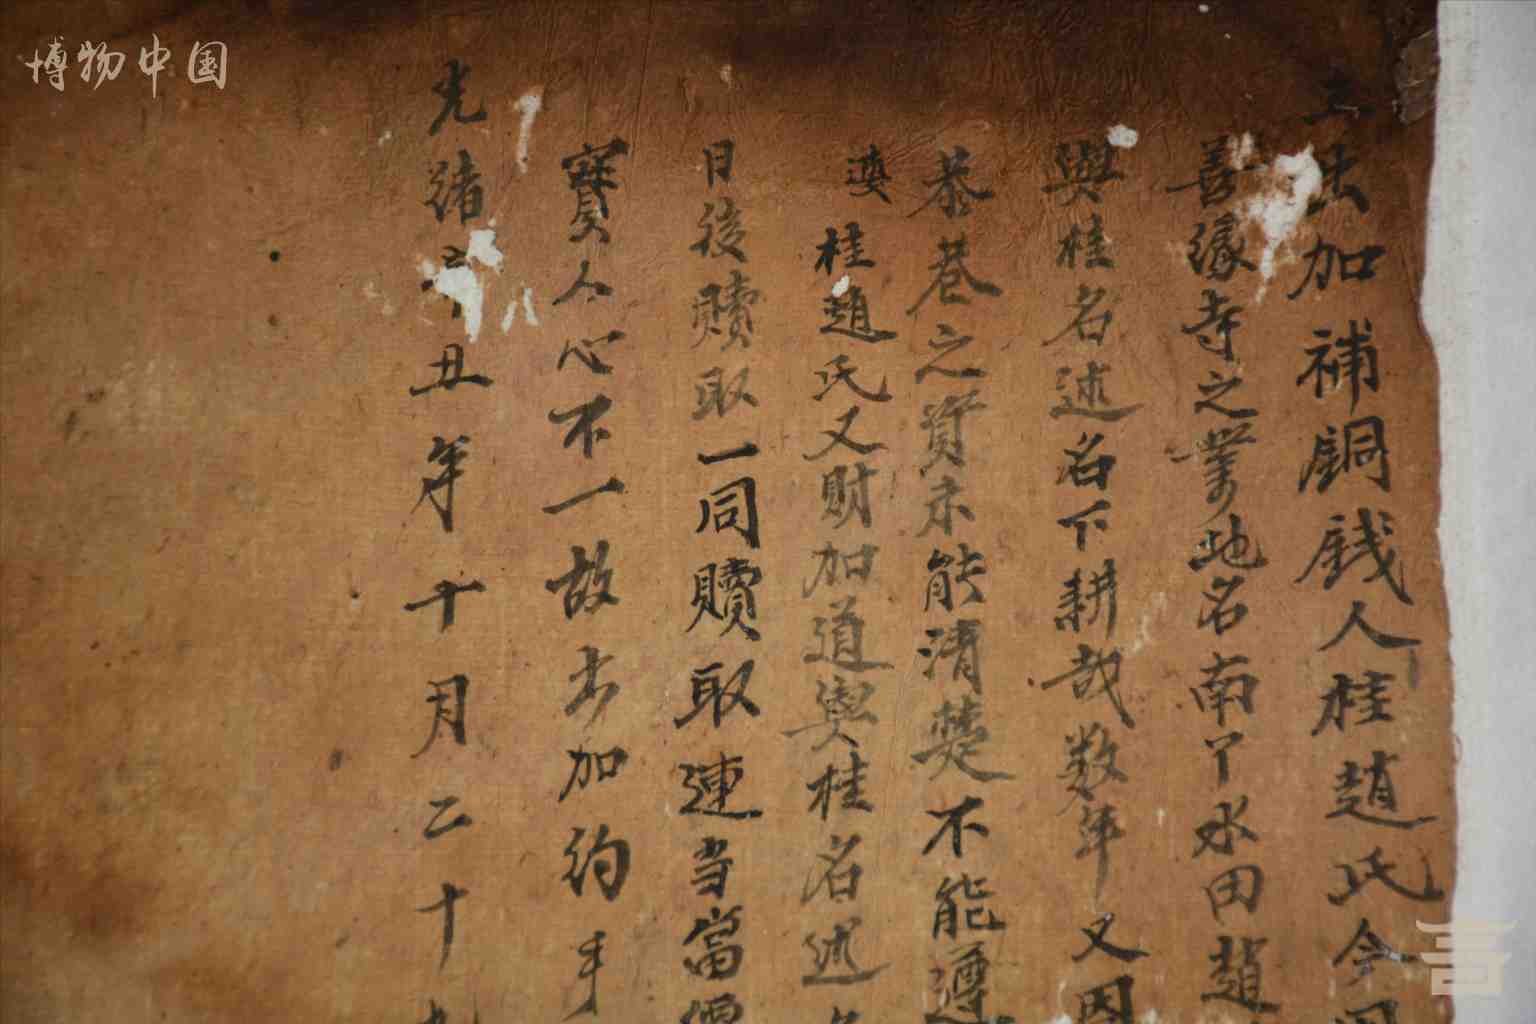 博物中国
立出加補銅錢人桂趙氏今因
善缘寺之業地名南丫水田趙
與桂名述名下耕哉数年又因
恭巷之資未能清楚不能遵
桂趙氏又財加道與桂名述名
日後贖取一同贖取連当當價
人心不一故出加约
光緒丑年十月二十九
言